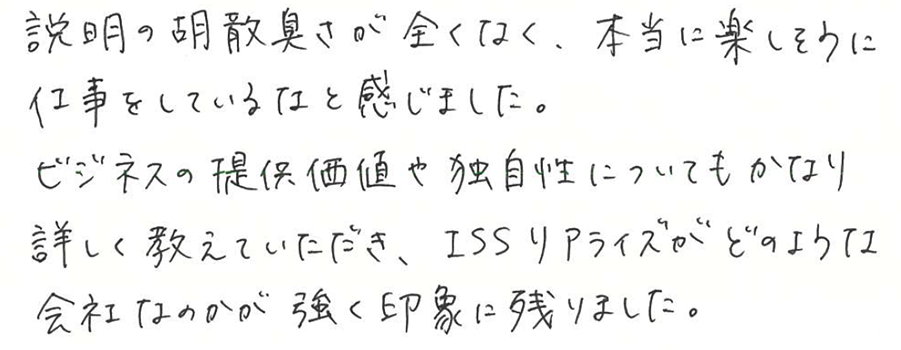 説明の胡散臭さが全くなく、本当に楽しそうに
仕事をしているなと感じました。
ビジネスの提供価値や独自性についてもかなり
詳しく教えていただき、ISSリアライズがどのような
会社なのかが強く印象に残りました。